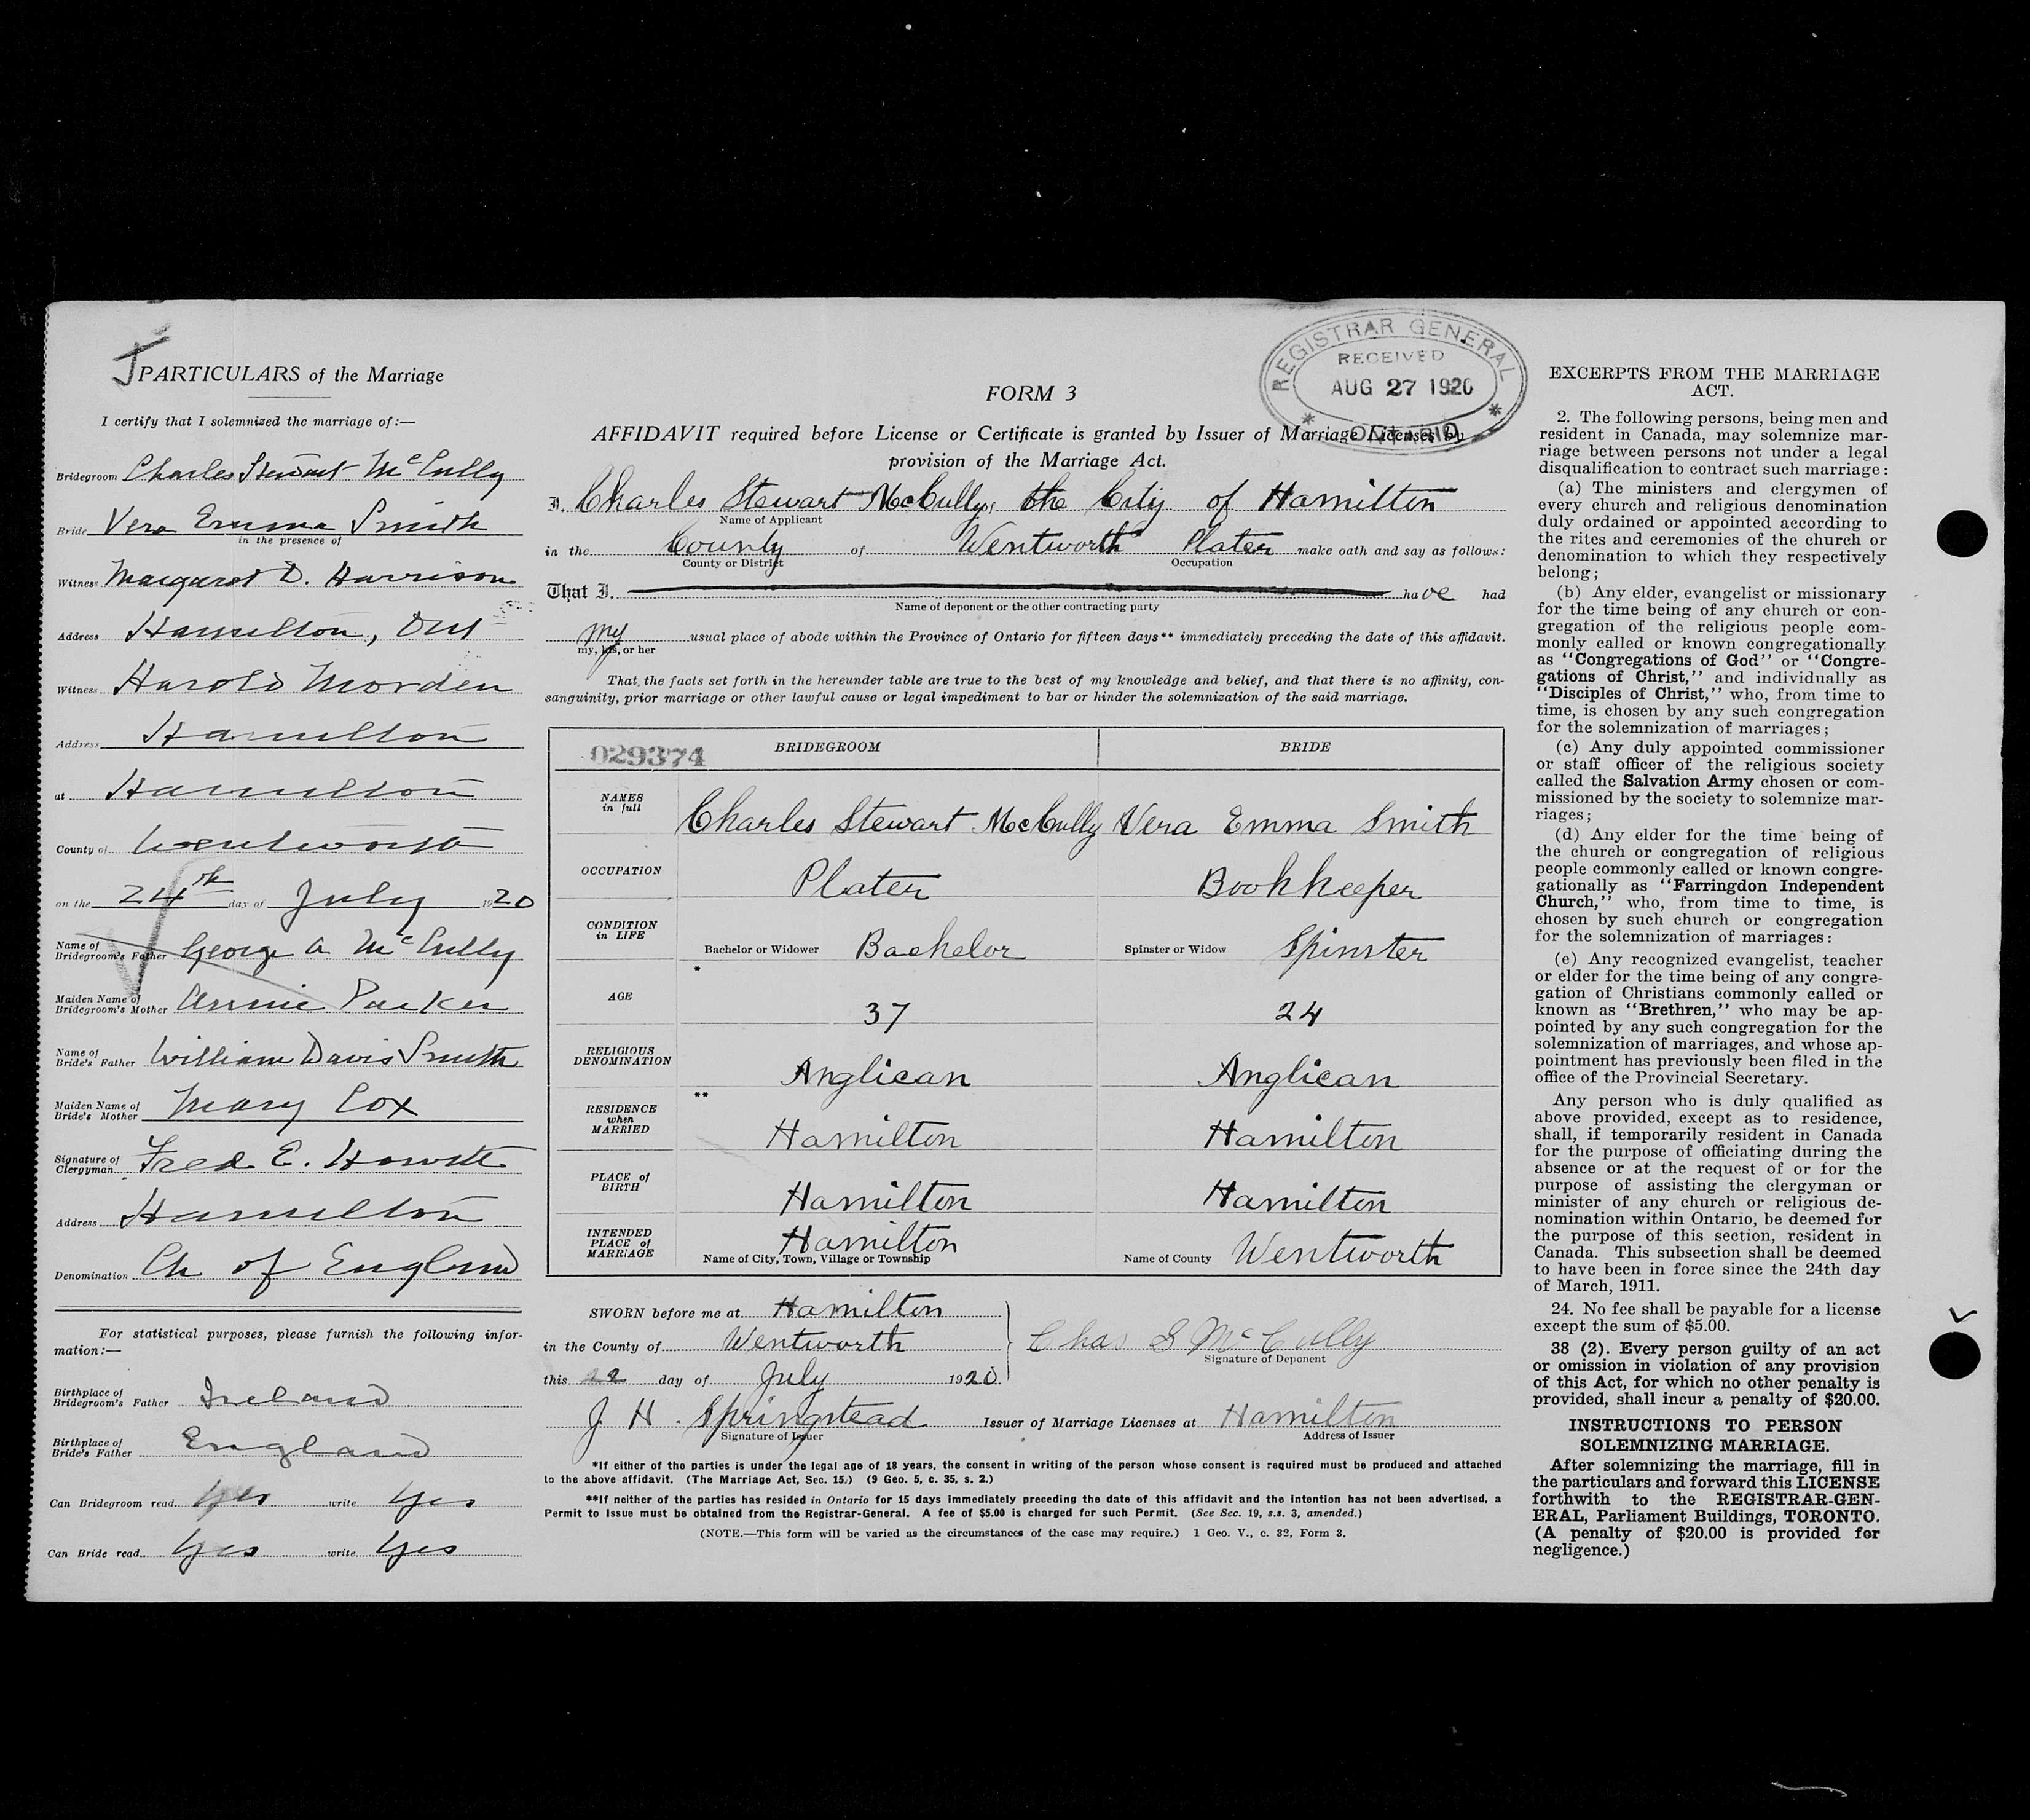 PARTICULARS of the Marriage
I certify that I solemnized the marriage of:—
Bridegroom Charles Stewart McCully
Bride Vera Emma Smith
in the presence of
Witness Margaret D. Harrison
Address Hamilton, Ont
Witness Harold Morden
Address Hamilton
at Hamilton
County of Wentworth
on the 24th day of July 1920
Name of Bridegroom's Father George A McCully
Maiden Name of Bridegroom's Mother Annie Parker
Name of Bride's Father William Davis Smith
Maiden Name of Bride's Mother Mary Cox
Signature of Clergyman Fred E. Howitt
Address Hamilton
Denomination Ch of England
For statistical purposes, please furnish the following infor-
mation:—
Birthplace of Bridegroom's Father Ireland
Birthplace of Bride's Father England
Can Bridegroom read yes write yes
Can Bride read yes write yes
REGISTRAR GENERAL
RECEIVED
AUG 27 1920
ONTARIO
FORM 3
AFFIDAVIT required before License or Certificate is granted by Issuer of Marriage Licenses by
provision of the Marriage Act.
I, Charles Stewart McCully, the City of Hamilton
Name of Applicant
in the County of Wentworth Plater make oath and say as follows:
County or District Occupation
That I, have had
Name of deponent or the other contracting party
my usual place of abode within the Province of Ontario for fifteen days** immediately preceding the date of this affidavit.
my, his, or her
That the facts set forth in the hereunder table are true to the best of my knowledge and belief, and that there is no affinity, con-
sanguinity, prior marriage or other lawful cause or legal impediment to bar or hinder the solemnization of the said marriage.
029374 BRIDEGROOM BRIDE
NAMES in full Charles Stewart McCully Vera Emma Smith
OCCUPATION Plater Bookkeeper
CONDITION in LIFE Bachelor or Widower Bachelor Spinster or Widow Spinster
*
AGE 37 24
RELIGIOUS DENOMINATION Anglican Anglican
**
RESIDENCE when MARRIED Hamilton Hamilton
PLACE of BIRTH Hamilton Hamilton
INTENDED PLACE of MARRIAGE Hamilton Name of County Wentworth
Name of City, Town, Village or Township
SWORN before me at Hamilton
in the County of Wentworth
this 22 day of July 1920
Chas S McCully
Signature of Deponent
J H. Springstead Issuer of Marriage Licenses at Hamilton
Signature of Issuer Address of Issuer
*If either of the parties is under the legal age of 18 years, the consent in writing of the person whose consent is required must be produced and attached
to the above affidavit. (The Marriage Act, Sec. 15.) (9 Geo. 5, c. 35, s. 2.)
**If neither of the parties has resided in Ontario for 15 days immediately preceding the date of this affidavit and the intention has not been advertised, a
Permit to Issue must be obtained from the Registrar-General. A fee of $5.00 is charged for such Permit. (See Sec. 19, s.s. 3, amended.)
(NOTE.—This form will be varied as the circumstances of the case may require.) 1 Geo. V., c. 32, Form 3.
EXCERPTS FROM THE MARRIAGE
ACT.
2. The following persons, being men and
resident in Canada, may solemnize mar-
riage between persons not under a legal
disqualification to contract such marriage:
(a) The ministers and clergymen of
every church and religious denomination
duly ordained or appointed according to
the rites and ceremonies of the church or
denomination to which they respectively
belong;
(b) Any elder, evangelist or missionary
for the time being of any church or con-
gregation of the religious people com-
monly called or known congregationally
as "Congregations of God" or "Congre-
gations of Christ," and individually as
"Disciples of Christ," who, from time to
time, is chosen by any such congregation
for the solemnization of marriages;
(c) Any duly appointed commissioner
or staff officer of the religious society
called the Salvation Army chosen or com-
missioned by the society to solemnize mar-
riages;
(d) Any elder for the time being of
the church or congregation of religious
people commonly called or known congre-
gationally as "Farringdon Independent
Church," who, from time to time, is
chosen by such church or congregation
for the solemnization of marriages:
(e) Any recognized evangelist, teacher
or elder for the time being of any congre-
gation of Christians commonly called or
known as "Brethren," who may be ap-
pointed by any such congregation for the
solemnization of marriages, and whose ap-
pointment has previously been filed in the
office of the Provincial Secretary.
Any person who is duly qualified as
above provided, except as to residence,
shall, if temporarily resident in Canada
for the purpose of officiating during the
absence or at the request of or for the
purpose of assisting the clergyman or
minister of any church or religious de-
nomination within Ontario, be deemed for
the purpose of this section, resident in
Canada. This subsection shall be deemed
to have been in force since the 24th day
of March, 1911.
24. No fee shall be payable for a license
except the sum of $5.00.
38 (2). Every person guilty of an act
or omission in violation of any provision
of this Act, for which no other penalty is
provided, shall incur a penalty of $20.00.
INSTRUCTIONS TO PERSON
SOLEMNIZING MARRIAGE.
After solemnizing the marriage, fill in
the particulars and forward this LICENSE
forthwith to the REGISTRAR-GEN-
ERAL, Parliament Buildings, TORONTO.
(A penalty of $20.00 is provided for
negligence.)